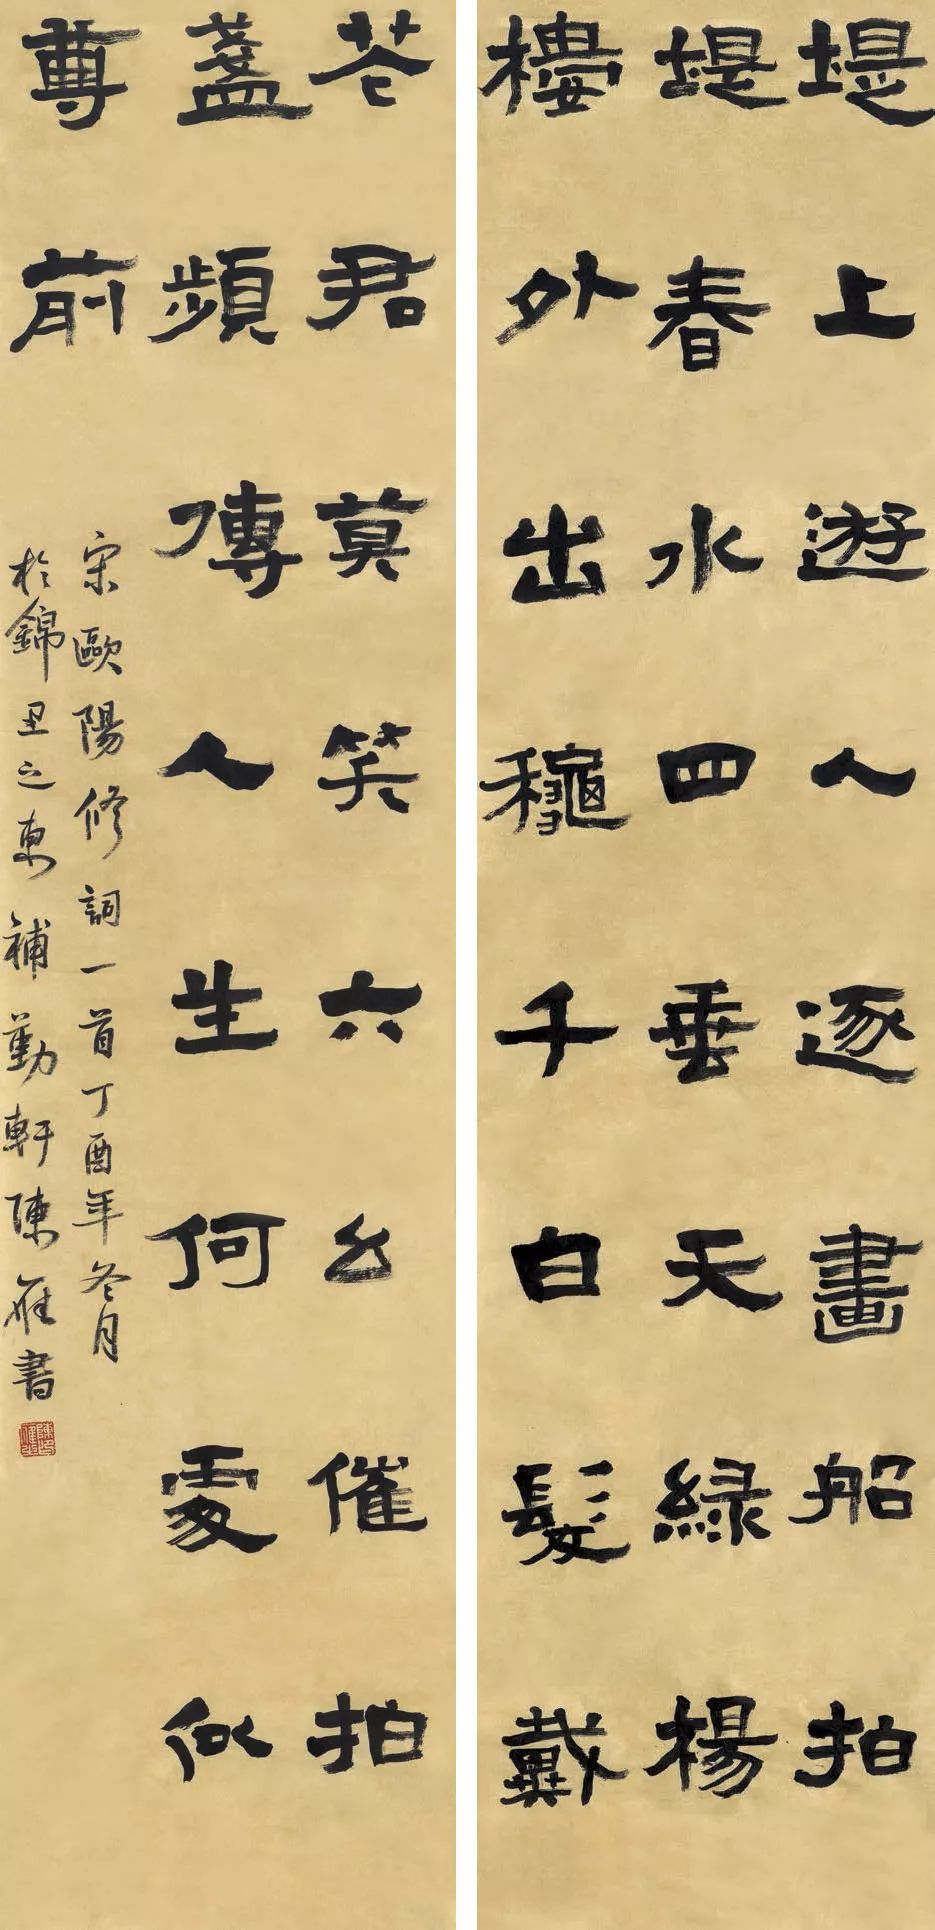 堤上遊人逐畫船拍
堤春水四垂天綠楊
樓外出龝千白髮戴
花君莫笑六幺催拍
盞頻傳人生何處似
尊前
宋歐陽修詞一首丁酉年冬月
於錦里之東補勤軒陳雁書